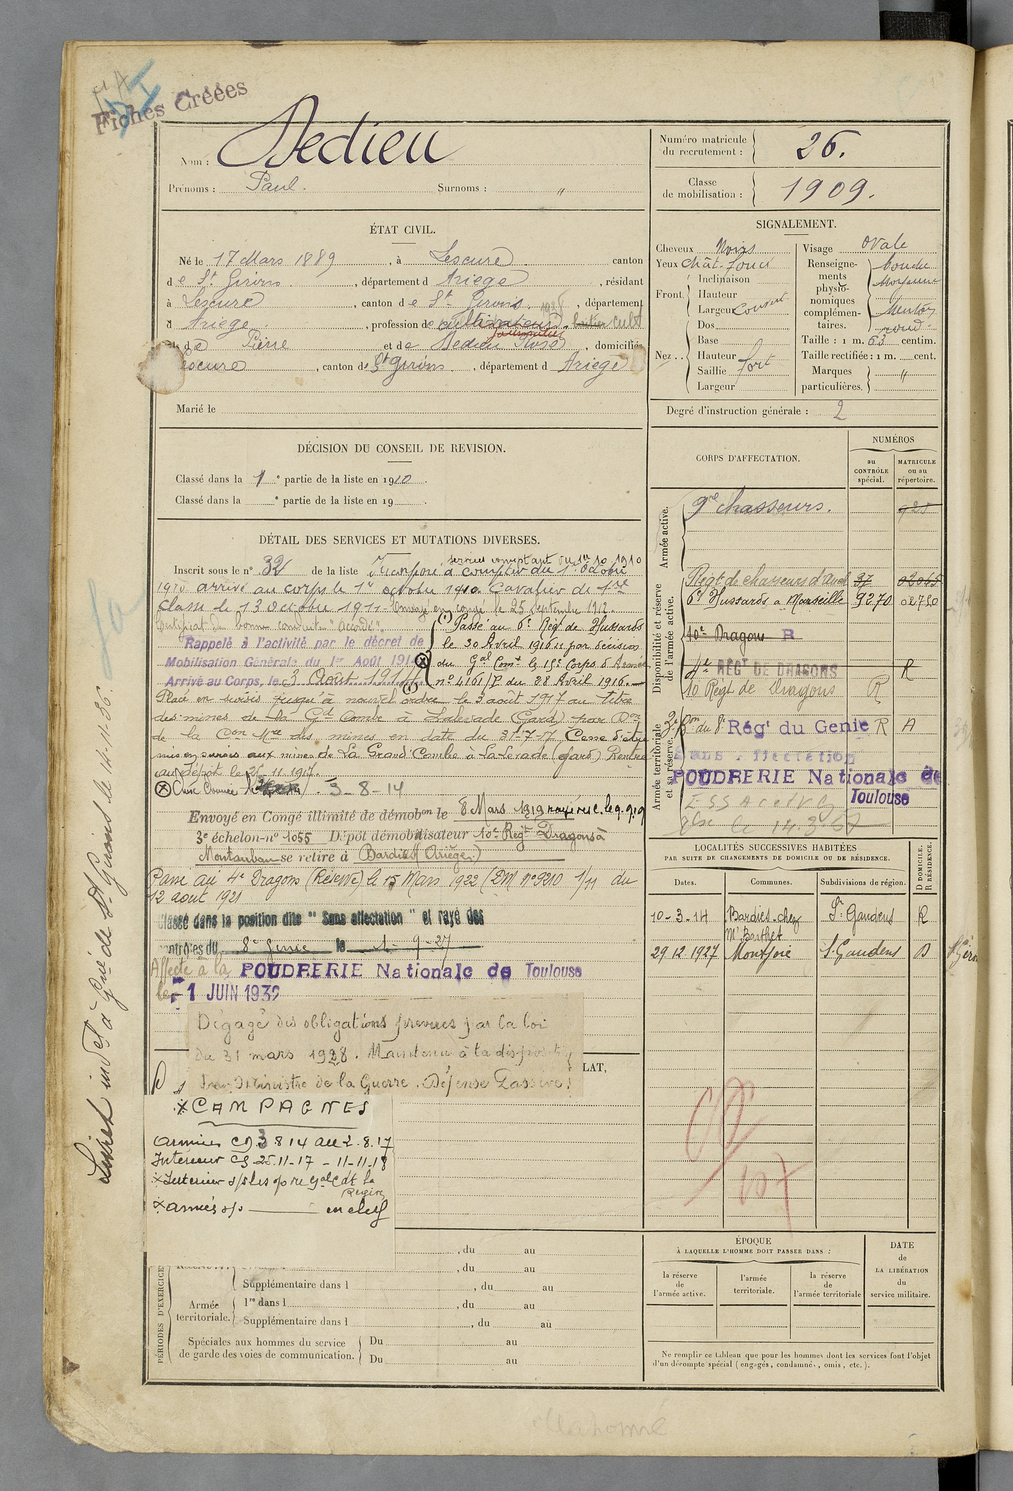 Fiches Créées
Nom : Dedieu
Prénoms : Paul. Surnoms : "
Numéro matricule du recrutement : 26.
Classe de mobilisation : 1909.
ÉTAT CIVIL.
Né le 17 Mars 1889, à Lescure canton
de St Girons, département d Ariège, résidant
à Lescure, canton de St Girons, département
d Ariège, profession de cultivateur
Pierre et de Dedieu Rose, domiciliés
Lescure, canton de St Girons, département d Ariège
Marié le
SIGNALEMENT.
Cheveux Noirs
Yeux Chât. foncé
Front
Inclinaison
Hauteur
Largeur Couvert
Nez
Dos
Base
Hauteur
Saillie fort
Largeur
Visage Ovale
Renseignements physionomiques complémentaires. bouche Moyenne Menton rond.
Taille : 1 m. 63 centim.
Taille rectifiée : 1 m. cent.
Marques particulières. "
Degré d'instruction générale : 2
DÉCISION DU CONSEIL DE REVISION.
Classé dans la 1e partie de la liste en 1910.
Classé dans la e partie de la liste en 19 .
DÉTAIL DES SERVICES ET MUTATIONS DIVERSES.
service comptant du 1er 10 1910
Inscrit sous le n° 32 de la liste Incorporé à compter du 1er Octobre
1910 arrivé au corps le 1er octobre 1910. Cavalier de 1re
classe le 13 Octobre 1911. Envoyé en congé le 25 septembre 1912.
Certificat de bonne conduite "Accordé".
Rappelé à l'activité par le décret de
Mobilisation Générale du 1er Août 1914
Arrivé au Corps, le 3 Août 1914
Passé au 6e Régt de Hussards
le 30 Avril 1916 par décision
du Gal Comt le 15e Corps d'Armée
n° 4161/P du 28 Avril 1916.
Placé en sursis jusqu'à nouvel ordre le 3 août 1917 au titre
des mines de la Gd Combe à Lalevade (Gard) par Don
de la Con Mre des mines en date du 31-7-17 Cesse d'être
mis en sursis aux mines de La Grand'Combe à La Levade (Gard) Rentré
au Dépôt le 25 11 1917.
3-8-14
Envoyé en Congé illimité de démobon le 8 Mars 1919
3e échelon-n° 1055 Dépôt démobilisateur 10e Régt Dragons à
Montauban se retire à Bardies (Ariège)
Passé au 4e Dragons (Réserve) le 15 Mars 1922 (DM n° 9210 1/11 du
12 août 1921
Classé dans la position dite "Sans affectation" et rayé des
contrôles du 8e Génie le 1-9-27
Affecté à la POUDRERIE Nationale de Toulouse
le -1 JUIN 1932
Dégagé des obligations prévues par la loi
du 31 mars 1928. Maintenu à la disposition
du Ministre de la Guerre. Défense Passive.
CAMPAGNES
Armées CD 3 8 14 au 2.8.17
Intérieur CS 25-11-17 - 11-11-18
CORPS D'AFFECTATION.
NUMÉROS
au CONTRÔLE spécial.
MATRICULE ou au répertoire.
Armée active.
9me Chasseurs. 925
Disponibilité et réserve de l'armée active.
Régt de chasseurs 37
6e Hussards à Marseille 9270 02730
10e Dragons R
4e RÉGT DE DRAGONS R
10 Régt de Dragons R
Armée territoriale et sa réserve.
8e Régt du Génie R A
Sans affectation
POUDRERIE Nationale de
Toulouse
LOCALITÉS SUCCESSIVES HABITÉES
PAR SUITE DE CHANGEMENTS DE DOMICILE OU DE RÉSIDENCE.
Dates. Communes. Subdivisions de région. D DOMICILE. R RÉSIDENCE.
10-3-14 Bardies chez Mr Berthet St Gaudens R
29 12 1927 Montjoie St Gaudens D
107
Livret indel à Gné de St Girons le
PÉRIODES D'EXERCICES
, du au
, du au
Supplémentaire dans l , du au
Armée territoriale.
1re dans l , du au
Supplémentaire dans l , du au
Spéciales aux hommes du service de garde des voies de communication.
Du au
Du au
ÉPOQUE
À LAQUELLE L'HOMME DOIT PASSER DANS :
la réserve de l'armée active.
l'armée territoriale.
la réserve de l'armée territoriale
DATE de LA LIBÉRATION du service militaire.
Ne remplir ce tableau que pour les hommes dont les services font l'objet
d'un décompte spécial (engagés, condamnés, omis, etc.).